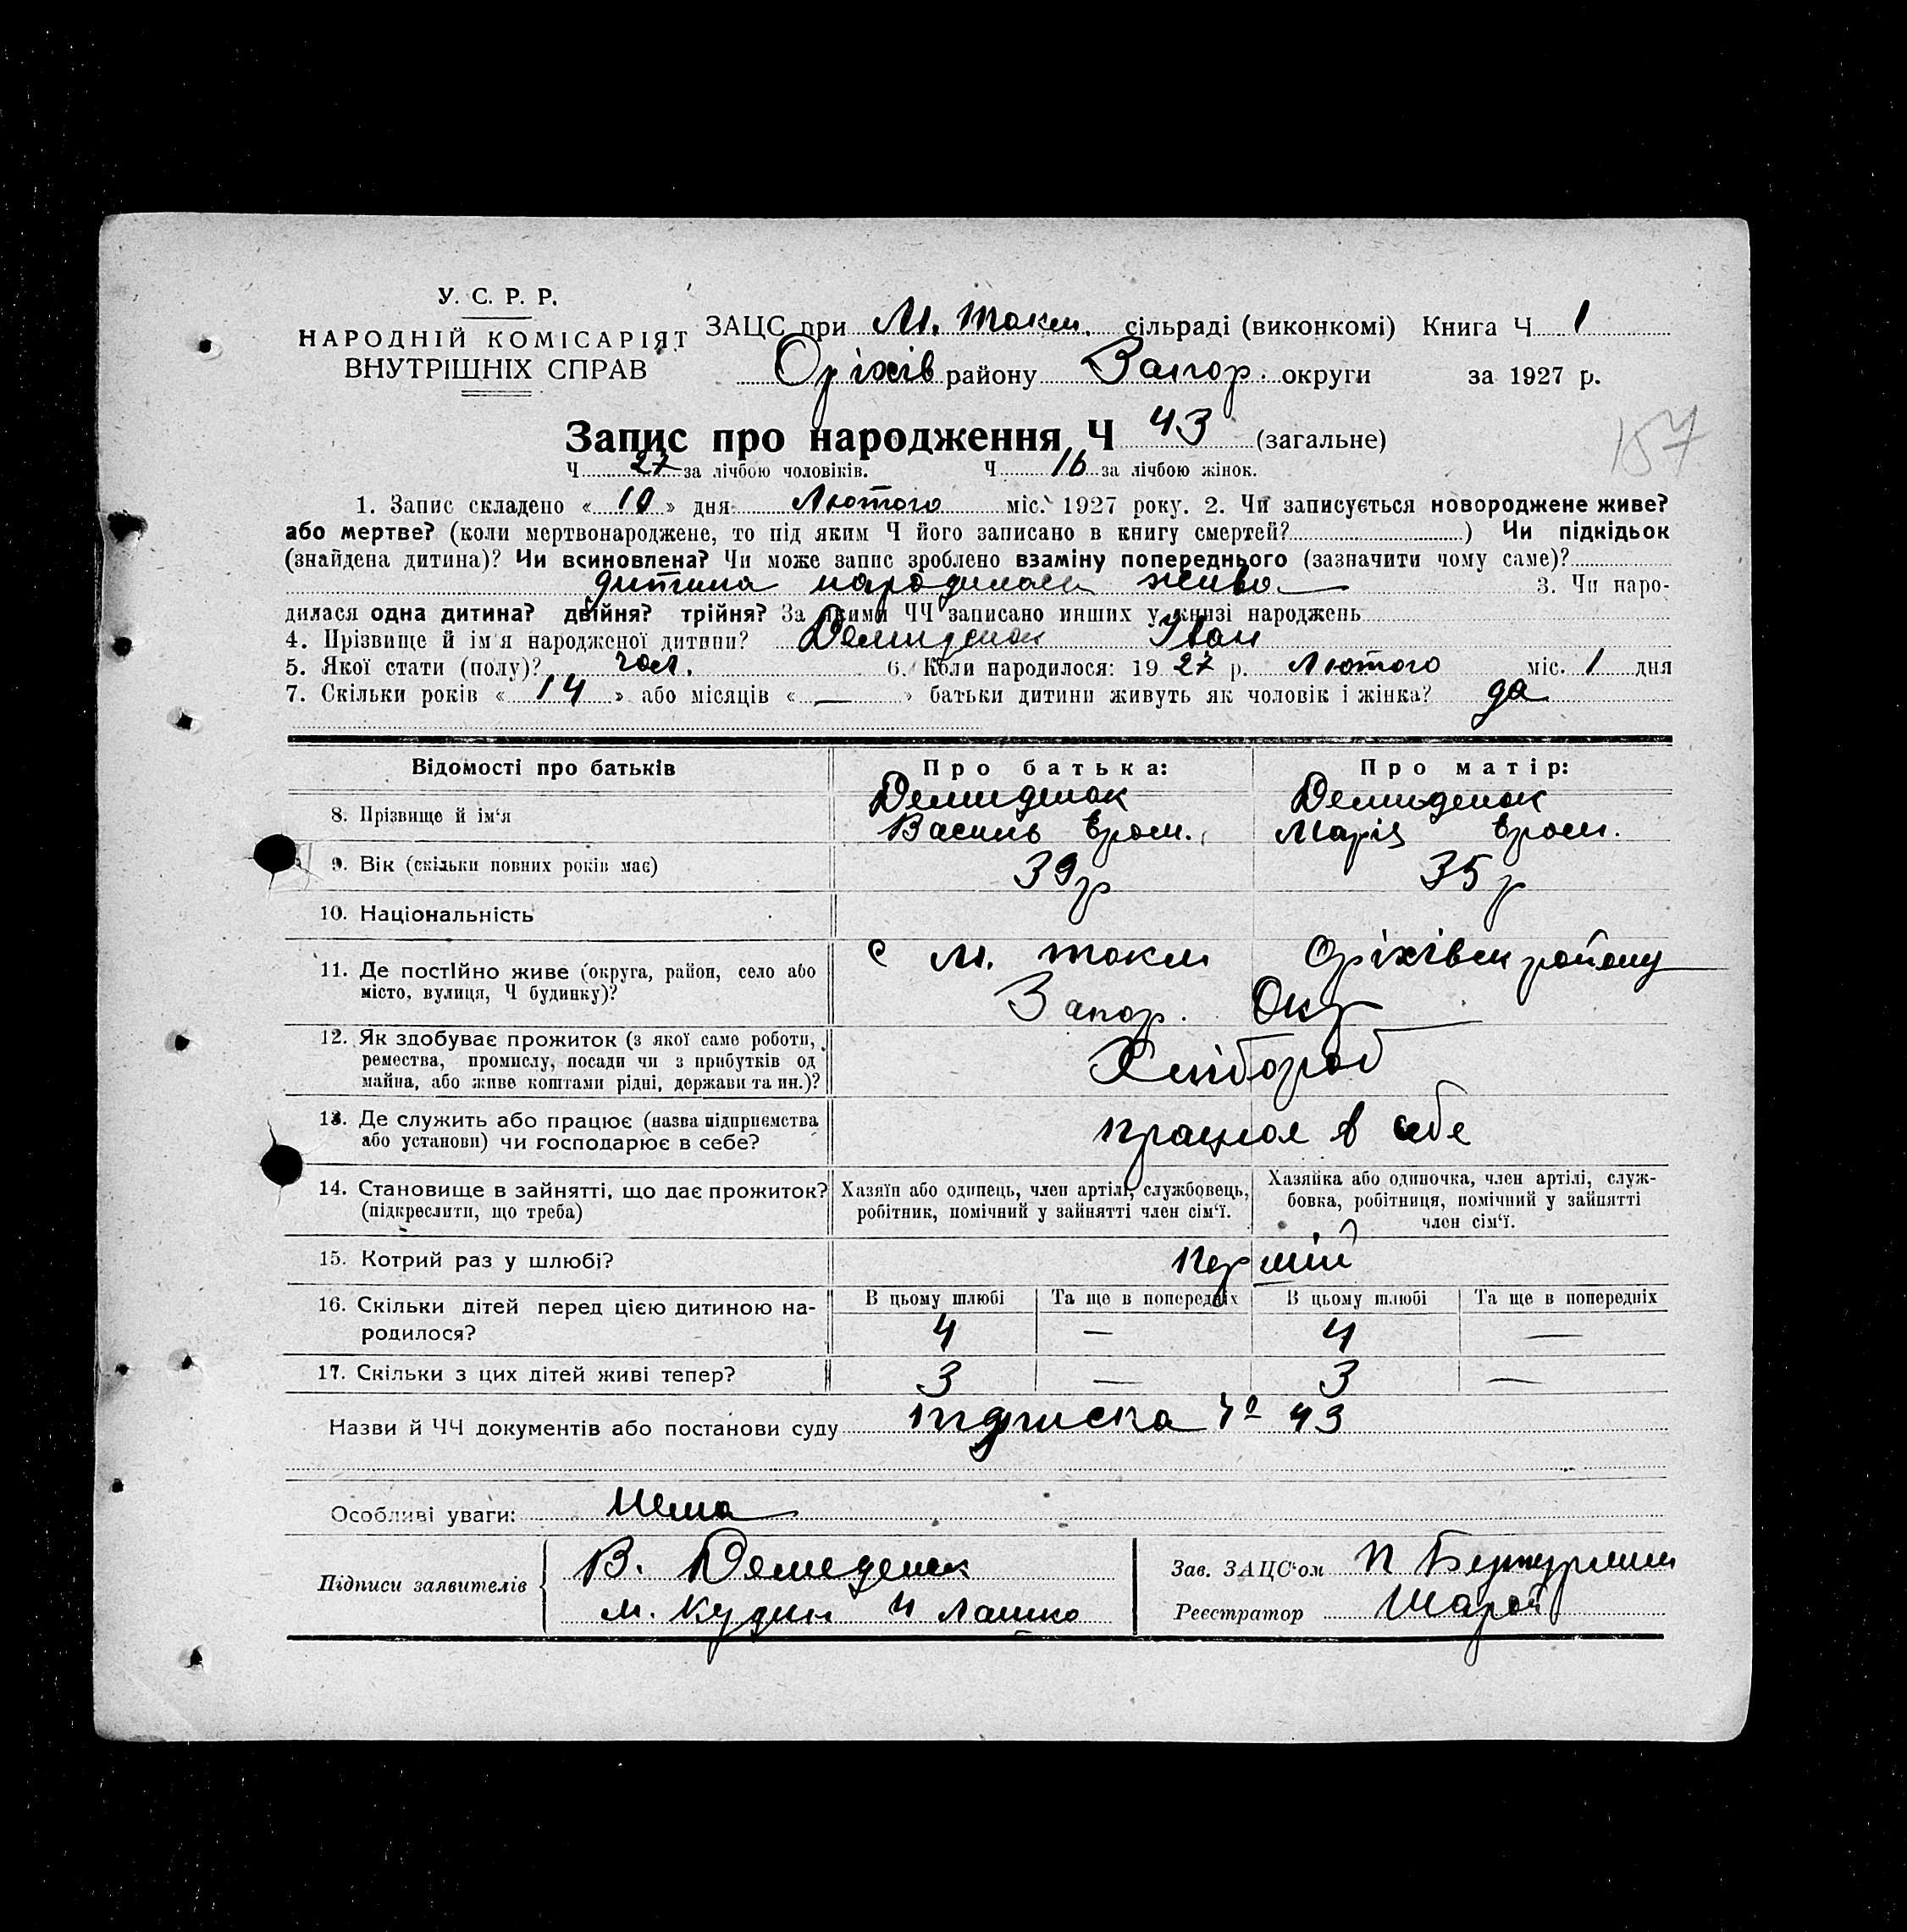 У. С. Р. Р.
НАРОДНІЙ КОМІСАРІЯТ
ВНУТРІШНІХ СПРАВ
ЗАЦС при М. Токм. сільраді (виконкомі) Книга Ч 1
Оріхів району Запор. округи за 1927 р.
157
Запис про народження Ч 43 (загальне)
Ч 27 за лічбою чоловіків. Ч 16 за лічбою жінок.
1. Запис складено « 10 » дня Лютого міс. 1927 року. 2. Чи записується новороджене живе?
або мертве? (коли мертвонароджене, то під яким Ч його записано в книгу смертей? ) Чи підкідьок
(знайдена дитина)? Чи всиновлена? Чи може запис зроблено взаміну попереднього (зазначити чому саме)?
дитина народилась жива 3. Чи наро-
дилася одна дитина? двійня? трійня? За якими ЧЧ записано инших у книзі народжень
4. Прізвище й ім'я народженої дитини? Демиденок Іван
5. Якої стати (полу)? чол. 6. Коли народилося: 1927 р. Лютого міс. 1 дня
7. Скільки років « 14 » або місяців « — » батьки дитини живуть як чоловік і жінка? да
Відомості про батьків Про батька: Про матір:
8. Прізвище й ім'я Демиденок Демиденок
Василь Врем. Марія
9. Вік (скільки повних років має) 39 р 35 р
10. Національність
11. Де постійно живе (округа, район, село або с М. Токм Оріхівськ району
місто, вулиця, Ч будинку)? Запор. Окр
12. Як здобуває прожиток (з якої саме роботи,
ремества, промислу, посади чи з прибутків од Хлібороб
майна, або живе коштами рідні, держави та ин.)?
13. Де служить або працює (назва підприємства працює в себе
або установи) чи господарює в себе?
14. Становище в зайнятті, що дає прожиток? Хазяїн або одинець, член артілі, службовець, Хазяйка або одиночка, член артілі, служ-
(підкреслити, що треба) робітник, помічний у зайнятті член сім'ї. бовка, робітниця, помічний у зайнятті
член сім'ї.
15. Котрий раз у шлюбі? перший
16. Скільки дітей перед цією дитиною на- В цьому шлюбі Та ще в попередніх В цьому шлюбі Та ще в попередніх
родилося? 4 — 4 —
17. Скільки з цих дітей живі тепер? 3 — 3 —
Назви й ЧЧ документів або постанови суду підписка № 43
Особливі уваги: Нема
Підписи заявителів В. Демеденок Зав. ЗАЦС'ом П
М. Кудин И Лашко Реєстратор Шарой